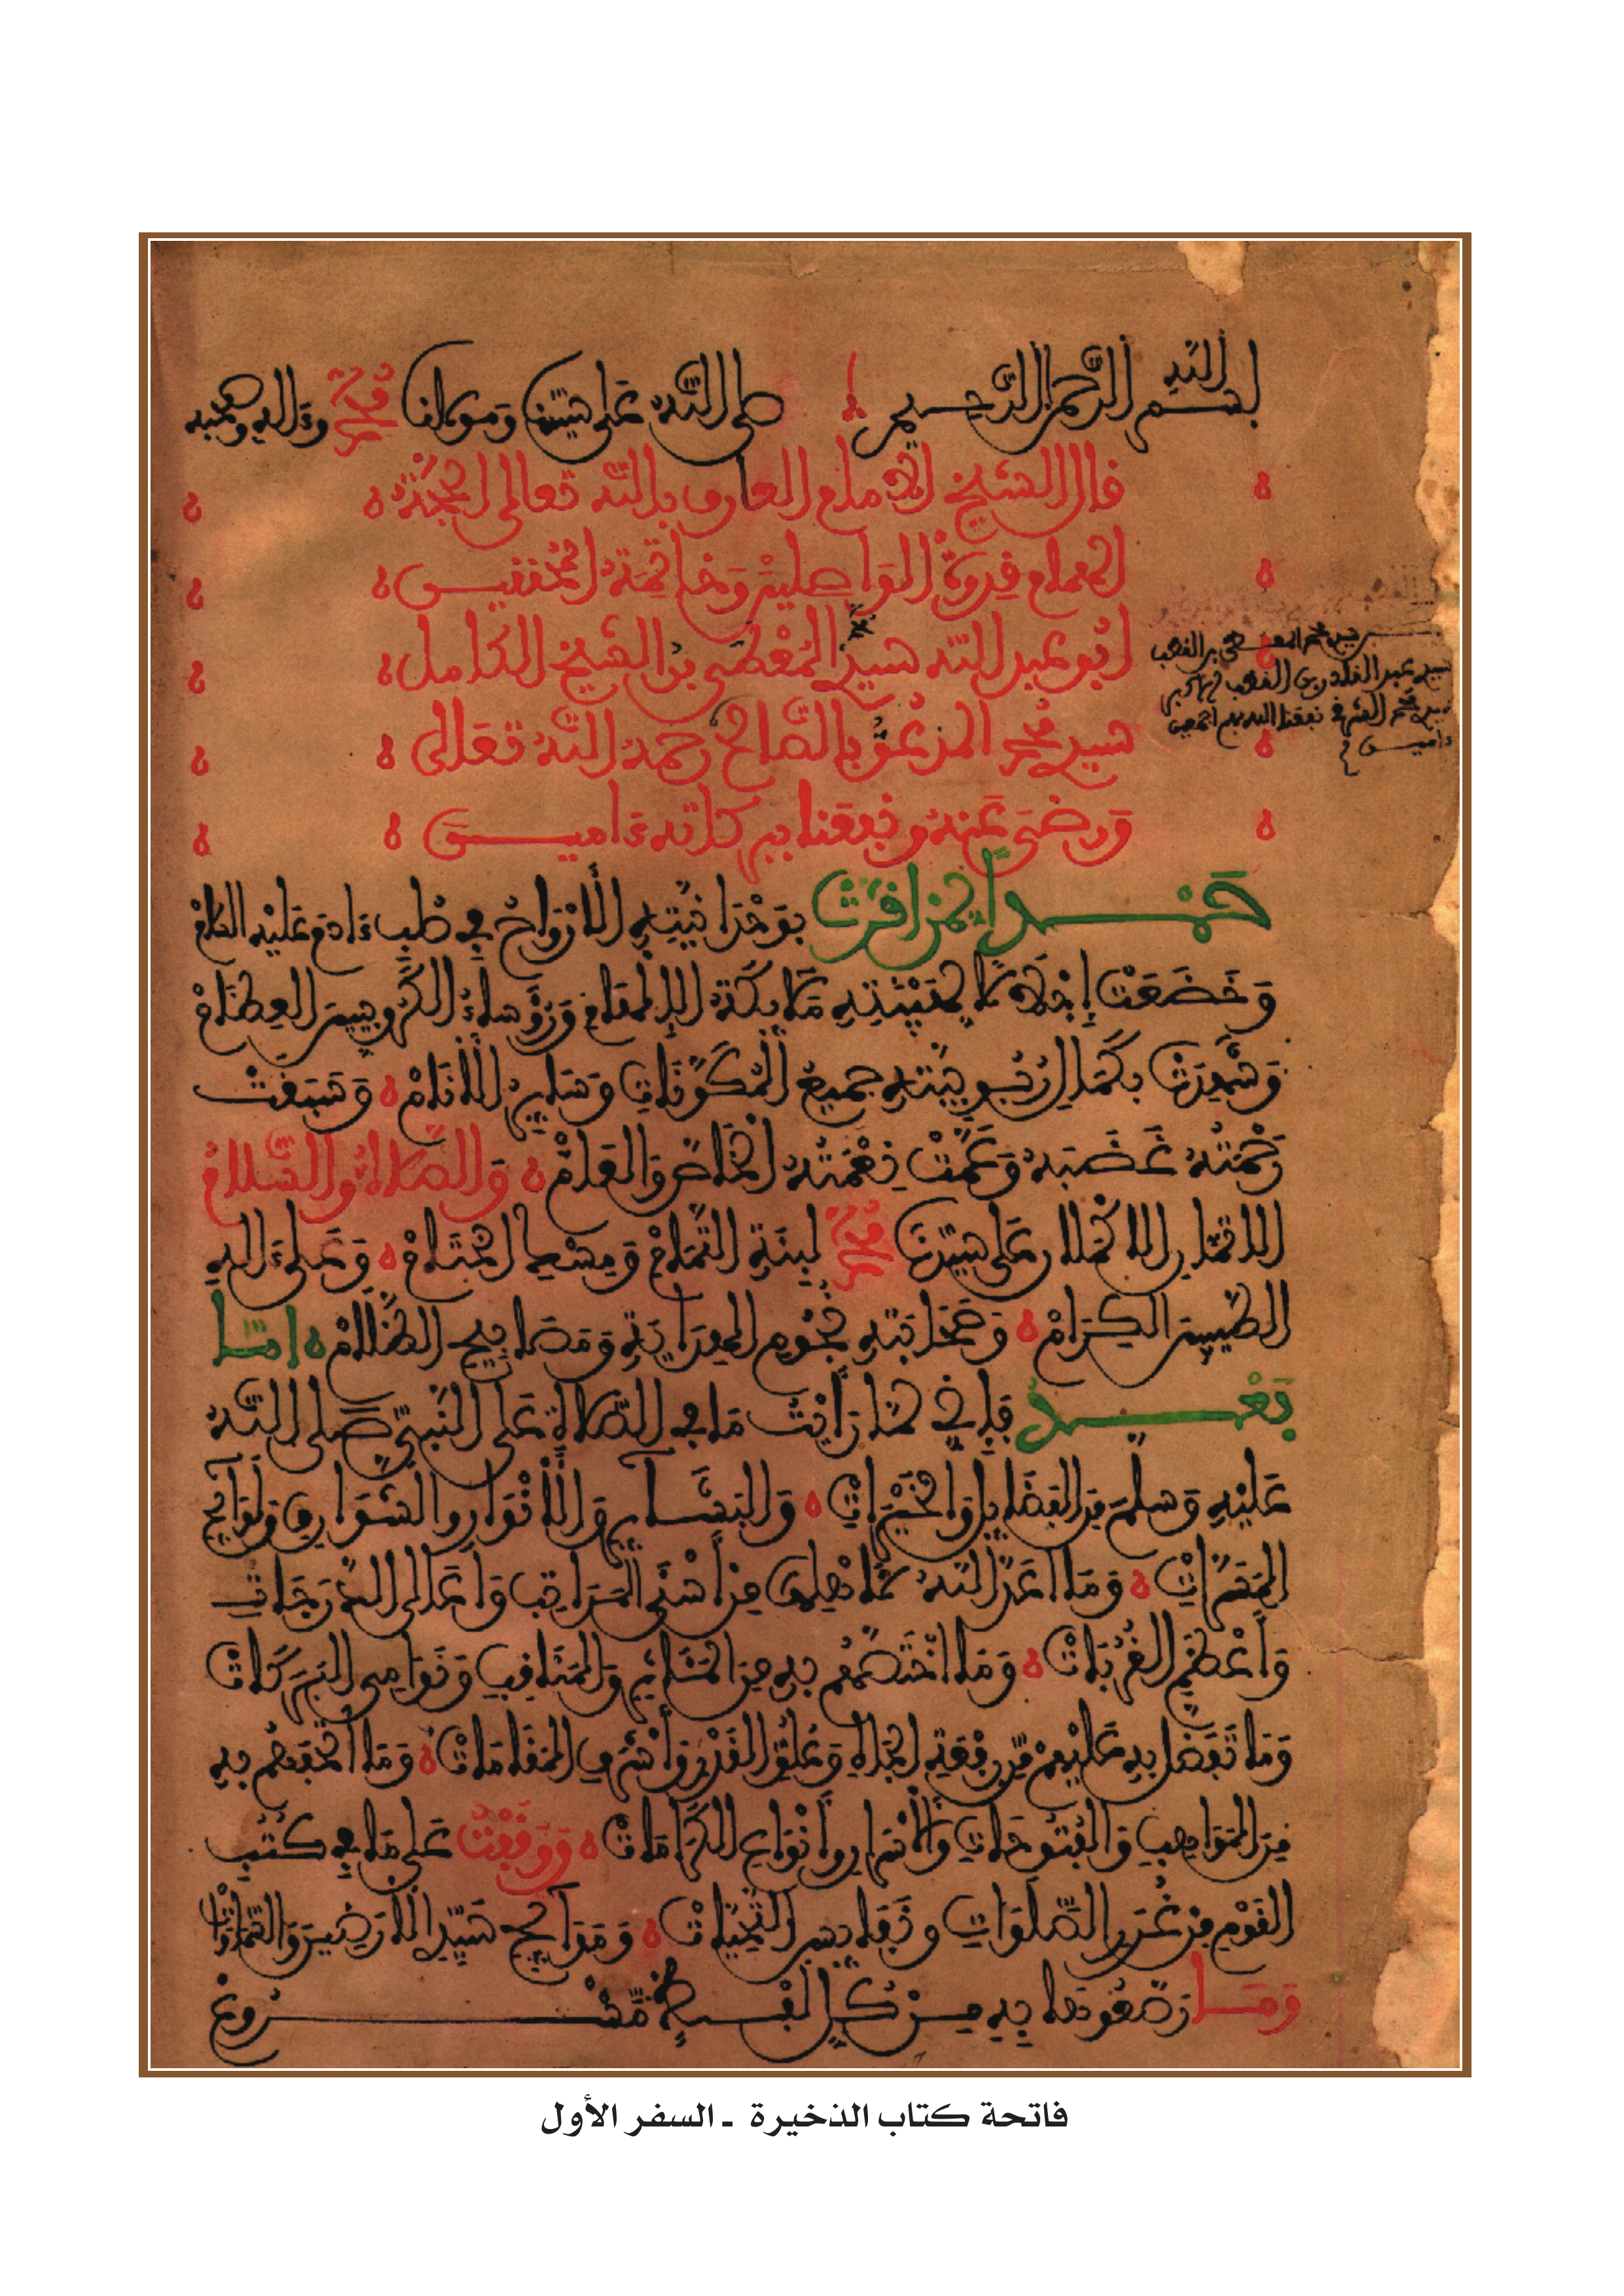 بسم الله الرحمن الرحيم صلى الله على سيدنا ومولانا محمد وءاله وصحبه
قال الشيخ الإمام العارف بالله تعالى الحجة
الهمام قدوة الواصلين وخاتمة المحققين
أبو عبد الله سيد محمد المعطى بن الشيخ الكامل
سيد محمد المدعو بالصالح رحمه الله تعالى
ورضي عنه ونفعنا ببركاته ءاميـن
حمـدا لمن اقرت بوحدانيته الأرواح في صلب ءادم عليه السلام
وخضعت إجلالا لهيبته ملائكة الإلهام ورؤساء الكروبيين العظام
وشهدت بكمال ربوبيته جميع المكونات وسائر الأنام وسبقت
رحمته غضبه وعمت نعمته الخاص والعام والصلاة والسلام
الاتمان الاكملان على سيدنا محمد لبنة التمام ومسك الختام وعلى ءاله
الطيبين الكرام وصحابته نجوم الهداية ومصابيح الظلام امـا
بعـد فإني لما رأيت ما في الصلاة على النبي صلى الله
عليه وسلم من الفضل والخيرات والبشائر والأنوار والشوارق ولوائح
المسرات وما اعد الله لأهلها من أسنى المراتب وأعالي الدرجات
وأعظم القربات وما اختصهم به من المئاثر والمناقب ونوامي البركات
وما تفضل به عليهم من رفعة الجاه وعلو القدر وأشرف المقامات وما اتحفهم به
من المواهب والفتوحات والأسرار وأنواع الكرامات ووقفت على ما في كتب
القوم من غرر الصلوات ونفائس التحيات ومدائح سيد الأرضين والسماوات
ومـا رصعوها به مـن كل لفـظ مشـروع
سيد محمد المعطى بن القطب
سيد عبد القادر بن القطب الاكبر
سيد محمد الشرقي نفعنا الله بهم اجمعين
ءاميـن
فاتحة كتاب الذخيرة - السفر الأول